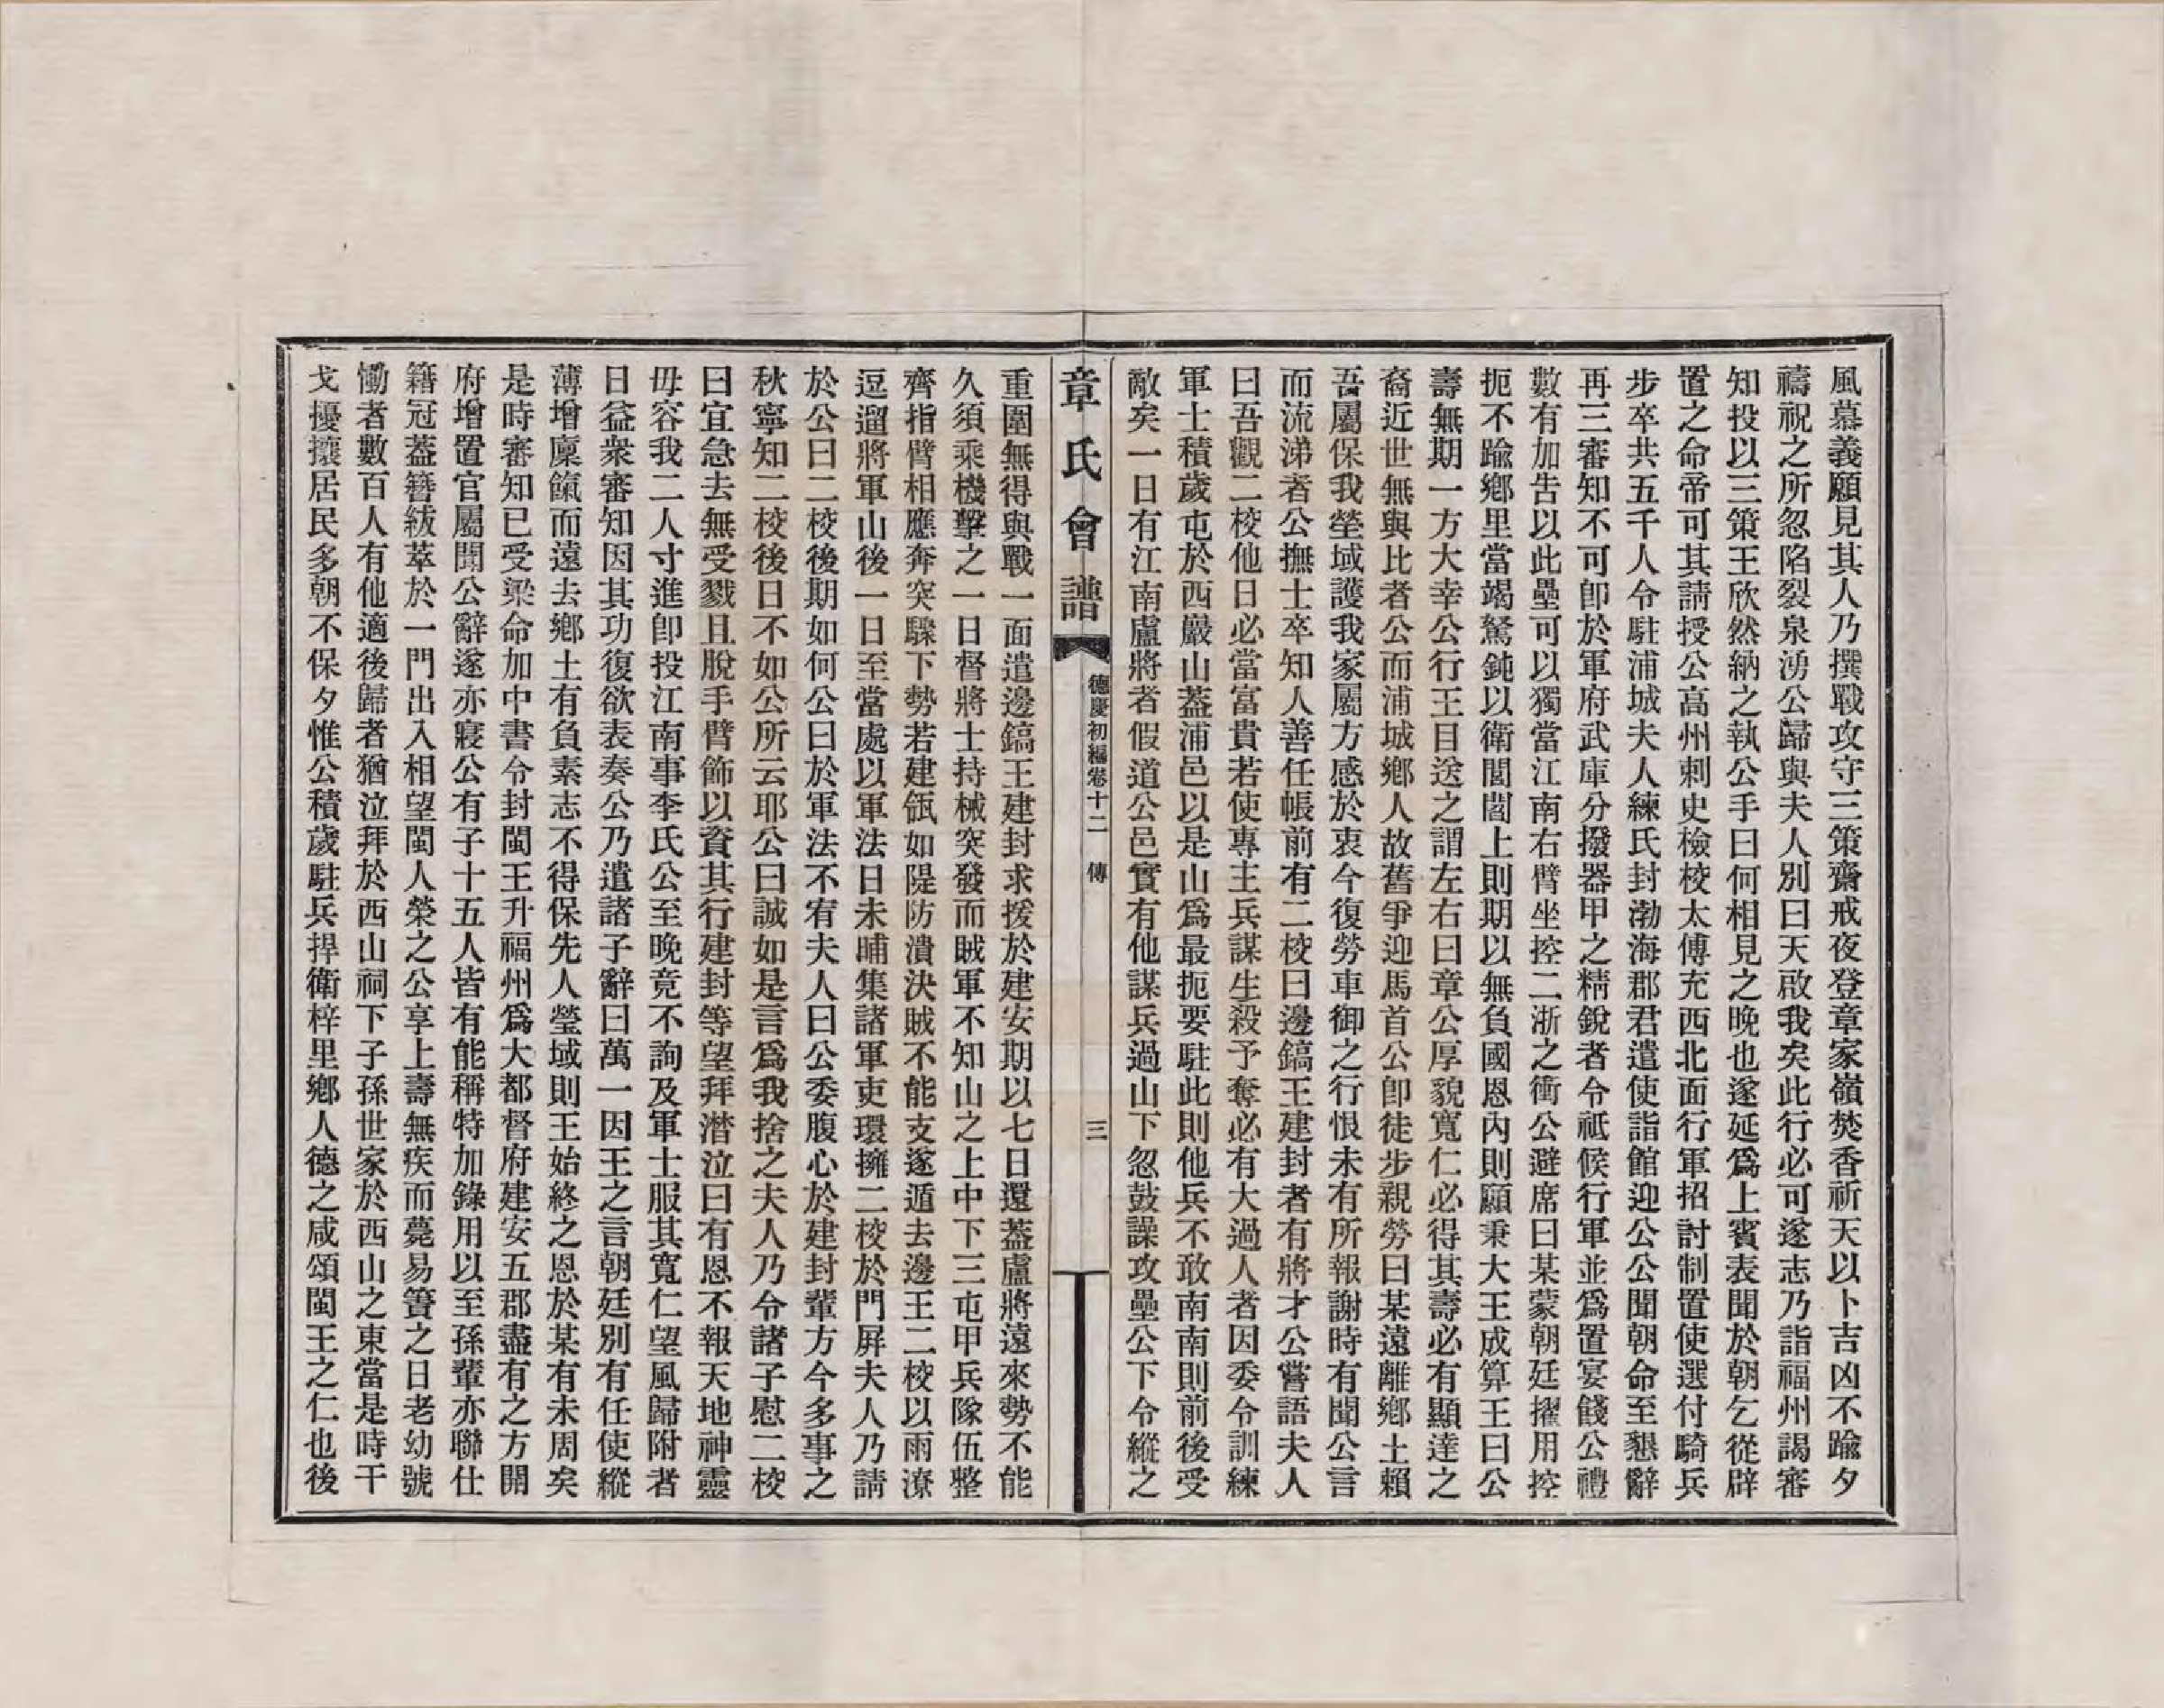 風慕義願見其人乃撰戰攻守三策齋戒夜登章家嶺焚香祈天以卜吉凶不踰夕
禱祝之所忽陷裂泉湧公歸與夫人別曰天啟我矣此行必可遂志乃詣福州謁審
知投以三策王欣然納之執公手曰何相見之晚也遂延爲上賓表聞於朝乞從辟
置之命帝可其請授公高州刺史檢校太傅充西北面行軍招討制置使選付騎兵
步卒共五千人令駐浦城夫人練氏封渤海郡君遣使詣館迎公公聞朝命至懇辭
再三審知不可卽於軍府武庫分撥器甲之精銳者令祗候行軍並爲置宴餞公禮
數有加告以此壘可以獨當江南右臂坐控二浙之衝公避席曰某蒙朝廷擢用控
扼不踰鄉里當竭駑鈍以衛閭閻上則期以無負國恩內則願秉大王成算王曰公
壽無期一方大幸公行王目送之謂左右曰章公厚貌寬仁必得其壽必有顯達之
裔近世無與比者公而浦城鄉人故舊爭迎馬首公卽徒步親勞曰某遠離鄉土賴
吾屬保我塋域護我家屬方感於衷今復勞車御之行恨未有所報謝時有聞公言
而流涕者公撫士卒知人善任帳前有二校曰邊鎬王建封者有將才公嘗語夫人
曰吾觀二校他日必當富貴若使專主兵謀生殺予奪必有大過人者因委令訓練
軍士積歲屯於西巖山蓋浦邑以是山爲最扼要駐此則他兵不敢南南則前後受
敵矣一日有江南盧將者假道公邑實有他謀兵過山下忽鼓譟攻壘公下令縱之
章氏會譜
德慶初編卷十二 傳
三
重圍無得與戰一面遣邊鎬王建封求援於建安期以七日還蓋盧將遠來勢不能
久須乘機擊之一日督將士持械突發而賊軍不知山之上中下三屯甲兵隊伍整
齊指臂相應奔突驟下勢若建瓴如隄防潰決賊不能支遂遁去邊王二校以雨潦
逗遛將軍山後一日至當處以軍法日未晡集諸軍吏環擁二校於門屏夫人乃請
於公曰二校後期如何公曰於軍法不宥夫人曰公委腹心於建封輩方今多事之
秋寧知二校後日不如公所云耶公曰誠如是言爲我捨之夫人乃令諸子慰二校
曰宜急去無受戮且脫手臂飾以資其行建封等望拜潛泣曰有恩不報天地神靈
毋容我二人寸進卽投江南事李氏公至晚竟不詢及軍士服其寬仁望風歸附者
日益衆審知因其功復欲表奏公乃遣諸子辭曰萬一因王之言朝廷別有任使縱
薄增廩餼而遠去鄉土有負素志不得保先人瑩域則王始終之恩於某有未周矣
是時審知已受梁命加中書令封閩王升福州爲大都督府建安五郡盡有之方開
府增置官屬聞公辭遂亦寢公有子十五人皆有能稱特加錄用以至孫輩亦聯仕
籍冠蓋簪紱萃於一門出入相望閩人榮之公享上壽無疾而薨易簀之日老幼號
慟者數百人有他適後歸者猶泣拜於西山祠下子孫世家於西山之東當是時干
戈擾攘居民多朝不保夕惟公積歲駐兵捍衛梓里鄉人德之咸頌閩王之仁也後